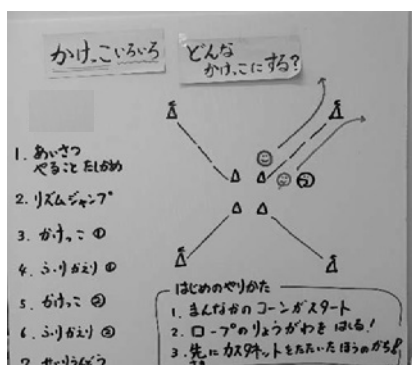 かけっこいろいろ
どんな
かけっこにする?
1. あいさつ
やること たしかめ
2. リズムジャンプ
3. かけっこ ①
4. ふりかえり ①
5. かけっこ ②
6. ふりかえり ②
7. せいりうんどう
はじめのやりかた
1. まんなかの コーンがスタート
2. ロープのりょうがわを はしる!
3. 先に カスタネットを たたいた ほうの かち!